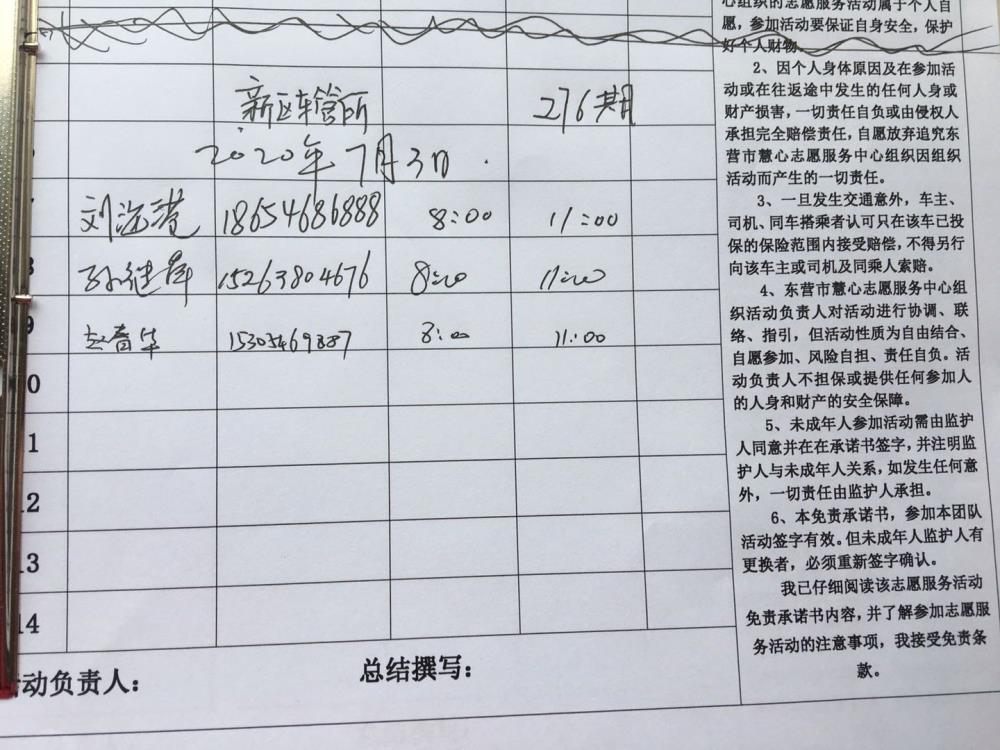 新区车管所 276期
2020年7月3日.
刘海港 18654686888 8:00 11:00
孙继群 15263804676 8:00 11:00
9 赵春华 15305469887 8:00 11:00
0
1
12
13
14
动负责人： 总结撰写：
心组织的志愿服务活动属于个人自
愿，参加活动要保证自身安全，保护
好个人财物。
2、因个人身体原因及在参加活
动或在往返途中发生的任何人身或
财产损害，一切责任自负或由侵权人
承担完全赔偿责任，自愿放弃追究东
营市慧心志愿服务中心组织因组织
活动而产生的一切责任。
3、一旦发生交通意外，车主、
司机、同车搭乘者认可只在该车已投
保的保险范围内接受赔偿，不得另行
向该车主或司机及同乘人索赔。
4、东营市慧心志愿服务中心组
织活动负责人对活动进行协调、联
络、指引，但活动性质为自由结合、
自愿参加、风险自担、责任自负。活
动负责人不担保或提供任何参加人
的人身和财产的安全保障。
5、未成年人参加活动需由监护
人同意并在在承诺书签字，并注明监
护人与未成年人关系，如发生任何意
外，一切责任由监护人承担。
6、本免责承诺书，参加本团队
活动签字有效。但未成年人监护人有
更换者，必须重新签字确认。
我已仔细阅读该志愿服务活动
免责承诺书内容，并了解参加志愿服
务活动的注意事项，我接受免责条
款。